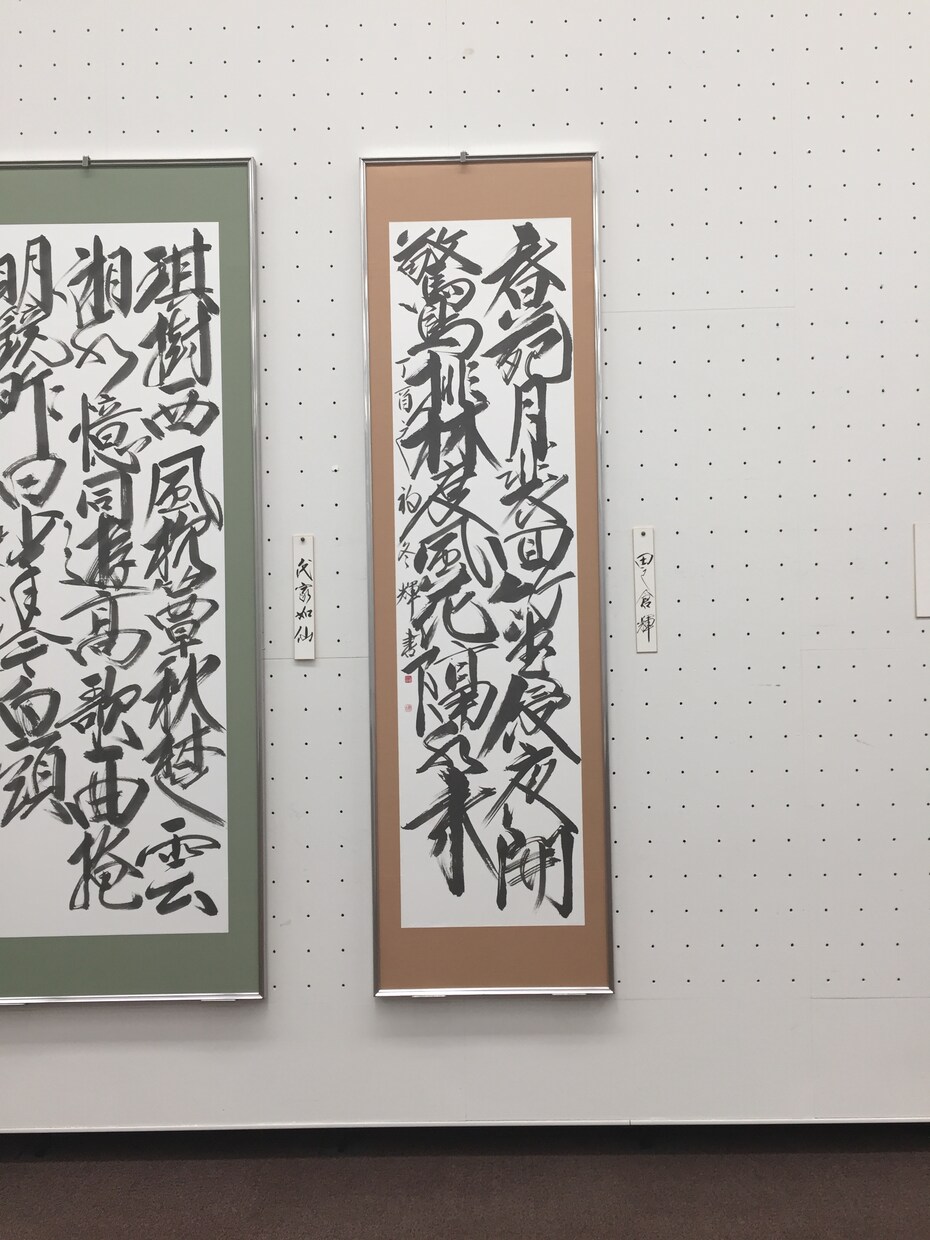 春苑月裴回竹堂侵夜開
驚鳥排林度風花隔水来
丁酉之初冬輝書
琪樹西風枕簟秋楚雲
湘水憶同遊高歌一曲掩
明鏡昨日少年今白頭